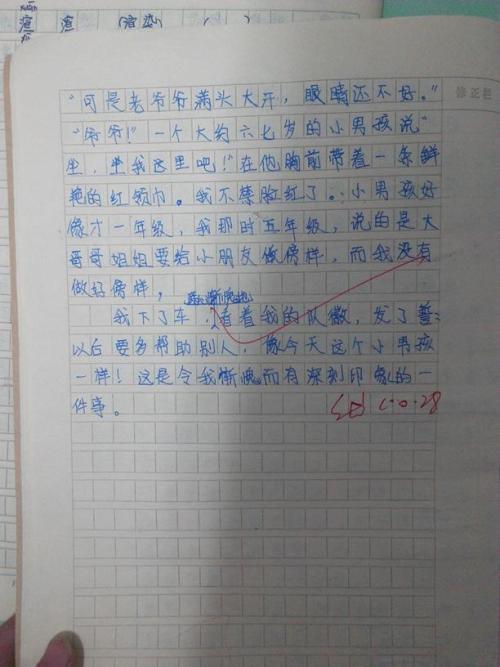 渲 渲 (渲染) ( )
修正栏
"可是老爷爷满头大汗，眼睛还不好。"
"爷爷！"一个大约六七岁的小男孩说"
坐，坐我这里吧！"在他胸前带着一条鲜
艳的红领巾。我不禁脸红了。小男孩好
像才一年级，我那时五年级，说的是大
哥哥姐姐要给小朋友做榜样，而我没有
做好榜样，
我下了车，看着我的队徽，发了誓：
以后要多帮助别人，像今天这个小男孩
一样！这是令我惭愧而有深刻印象的一
件事。